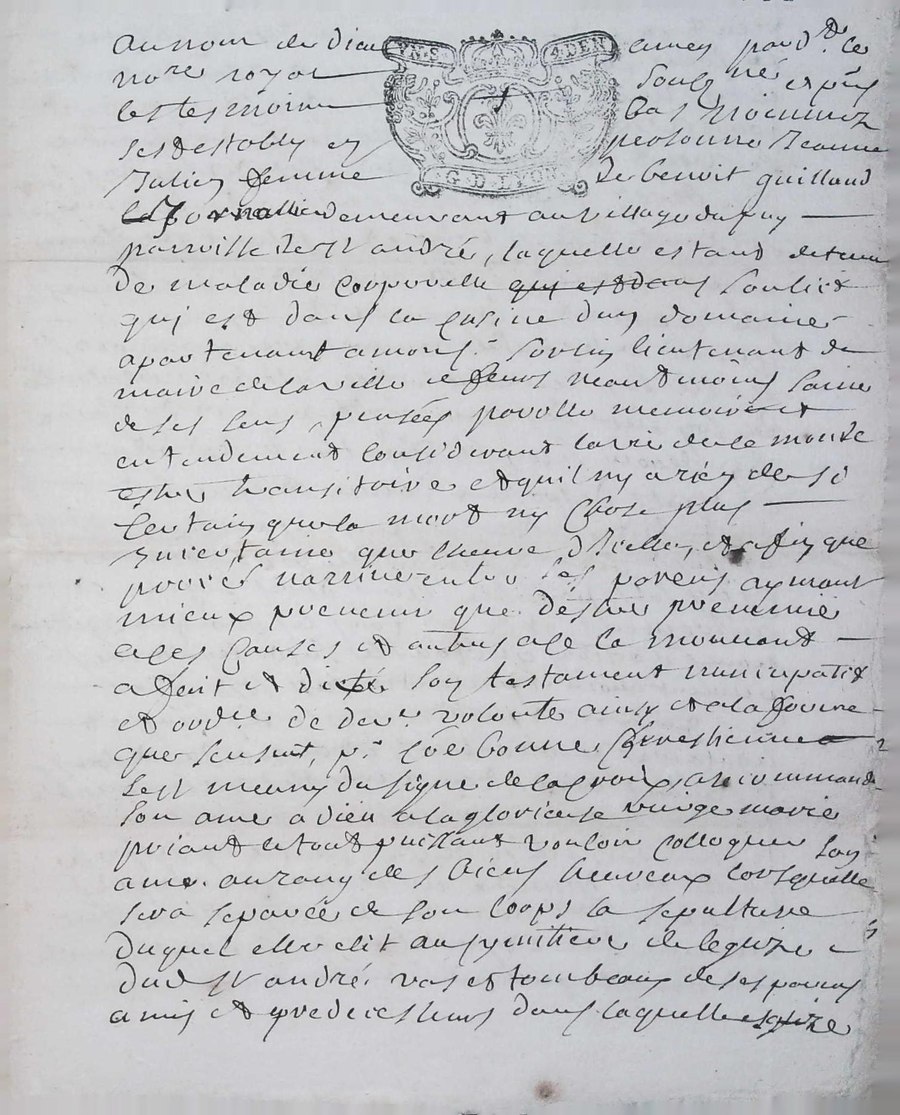 au nom de dieu VN.S 4.DEN amen pard.t le
notre royal soubz.né et pñs
les tesmoins bas nommez
ses & estably en personne Jeanne
Julien femme G.D.LYON de benoit guilland
demeurant au village du puy
parroisse de st andré, laquelle estant detenue
de maladie corporelle qui est dans son lict
qui est dans la cuisine d'un domaine
apartenant a mons.r lieutenant de
maire de la ville de feurs neantmoins saine
de ses sens, pensées parolle memoire et
entendement considerant la vie de ce monde
estre transitoire et quil ny a rien de si
certain que la mort ny chose plus
incertaine que lheure d'icelle, et afin que
procès narrive entre ses parens aymant
mieux prevenir que destre prevenue
a ces causes et autres a ce la mouvant
a fait et dicté son testament nuncupatif
et ordre de der.e volonté ainsy et a la forme
que sensuit, p.r cõe bonne chrestienne
sest munye du signe de la croix, a recommandé
son ame a dieu a la glorieuse vierge marie
priant le tout puissant vouloir colloquer son
ame au rang des bien heureux lors quelle
sera separée de son corps la sepulture
duquel elle elit au cymitiere de leglize
dud st andré vas et tombeaux de ses parens
amis et predecesseurs dans laquelle eglize